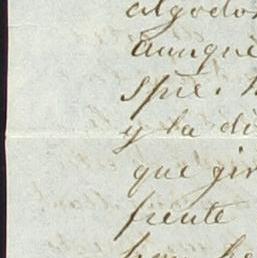 algodon
aunque
y la di
que gir
frente